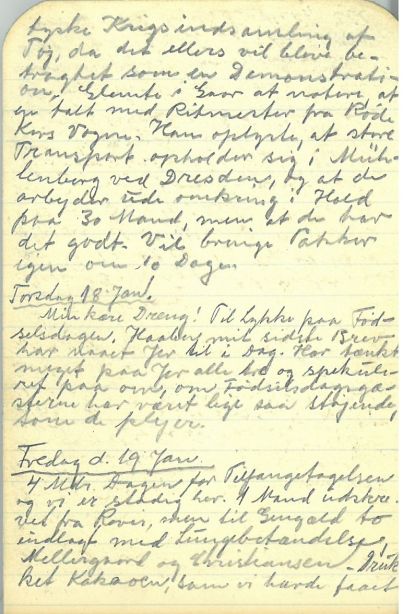 tyske Krigsindsamling af
Tøj, da det ellers vil blive be-
tragtet som en Demonstrati-
on. Glemte i Gaar at notere, at
en talt med Ritmester fra Røde
Kors Vogne. Han oplyste, at store
Transport opholder sig i Müh-
lenberg ved Dresden, og at de
arbejder ude omkring i Hold
paa 30 Mand, men at de har
det godt. Vil bringe Pakker
igen om 10 Dage.
Torsdag 18 Jan.
Min kære Dreng! Til Lykke paa Fød-
selsdagen. Haaber, mit sidste Brev
har naaet Jer til i Dag. Har tænkt
meget paa Jer alle tre og spekule-
ret paa om, om Fødselsdagsgæ-
sterne har været lige saa støjende,
som de plejer.
Fredag d. 19 Jan.
4 Mdr. Dagen for Tilfangetagelsen
og vi er stadig her. 4 Mand udskre-
vet fra Revier, men til Gengæld to
indlagt med Lungebetændelse,
Mellergaard og Christiansen - Druk
ket Kakaoen, som vi havde faaet